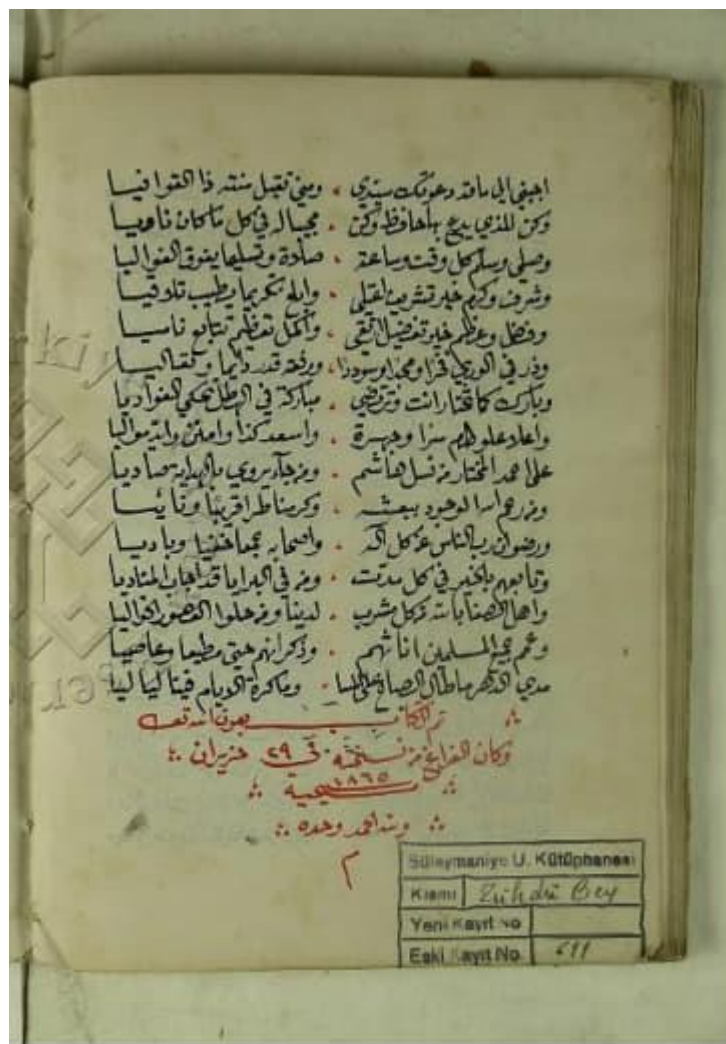 اجبني الى ما قد دعوتك سيدي . ومني تقبل منته ذا القوافيا
وكن للذي يدع بها حافظ وكن . مجيبا له في كل ما كان ناويا
وصلي وسلم كل وقت وساعة . صلاة وتسليما يفوق الغواليا
وشرف وكرم خير تشريف . تكريما يطيب تلاقيا
وفضل وعظم خير تفضيل . واكمل تعظيم تتابع ناميا
وزد في الورى فخرا ومجدا وسوددا . ورفعة قدر دايما
وبارك كما تختار انت وترتضي . مباركة في تحكي الغواديا
سرا وجهرة . واسعد كذا وامنن
على احمد المختار من نسل هاشم . ومن جاء يروي بالهداية صاديا
ومن رحم الله الوجود ببعثه . وكرمنا طرا قريبا ونائيا
ورضوان رب الناس عن كل اله . واصحابه جمعا خفيا وباديا
وتابعهم بالخير في كل مدت . ومن في البرايا قد اجاب المناديا
واهل كل مشرب . لدينا ومن حلوا القصور الخواليا
وعم جميع المسلمين اناثهم . وذكرانهم حتى مطيعا وعاصيا
مدى الدهر ما طال . وما كرة الايام فينا لياليا
تم الكتاب بعون الله تعـ
وكان الفراغ من نسخه في ٢٩ حزيران
١٨٦٥ مسيحية
ولله الحمد وحده
م
Süleymaniye U. Kütüphanesi
Kısmı Zühdü Bey
Yeni Kayıt No
Eski Kayıt No. 611